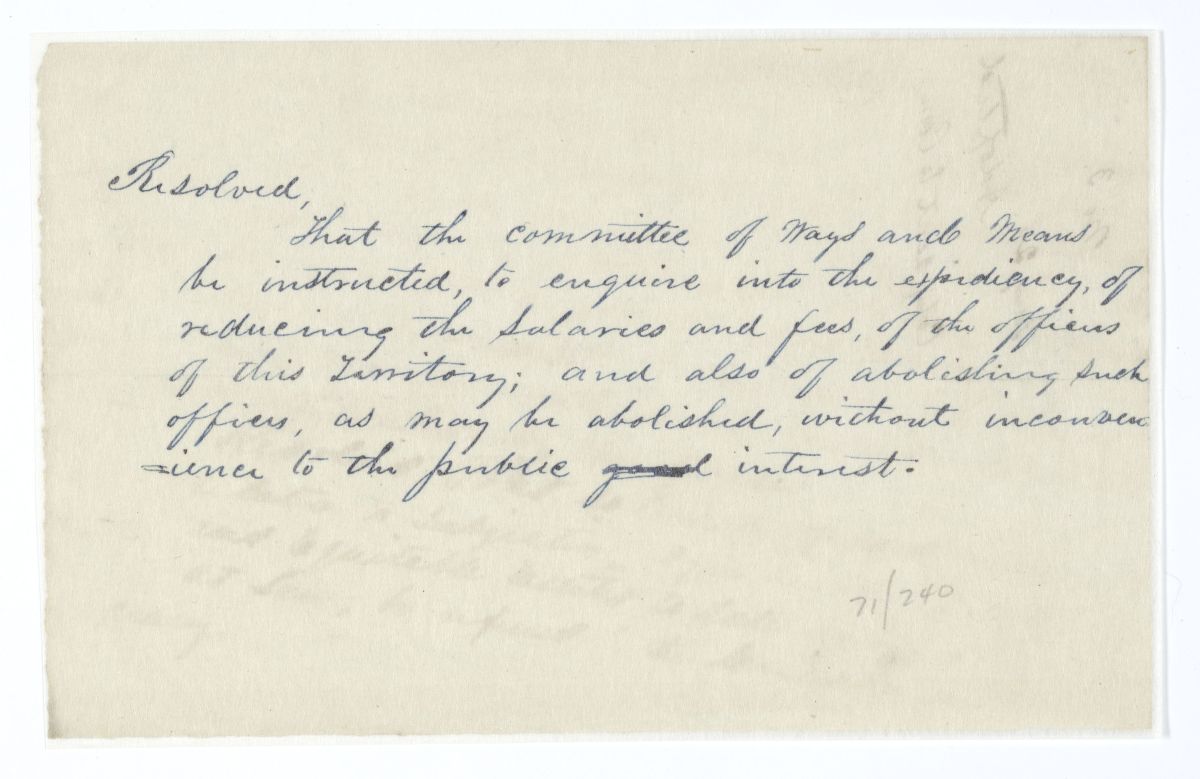 Resolved,
That the committee of Ways and Means
be instructed, to enquire into the expediency, of
reducing the salaries and fees, of the officers
of this Territory; and also of abolishing such
offices, as may be abolished, without inconven
=ience to the public good interest.
71/240